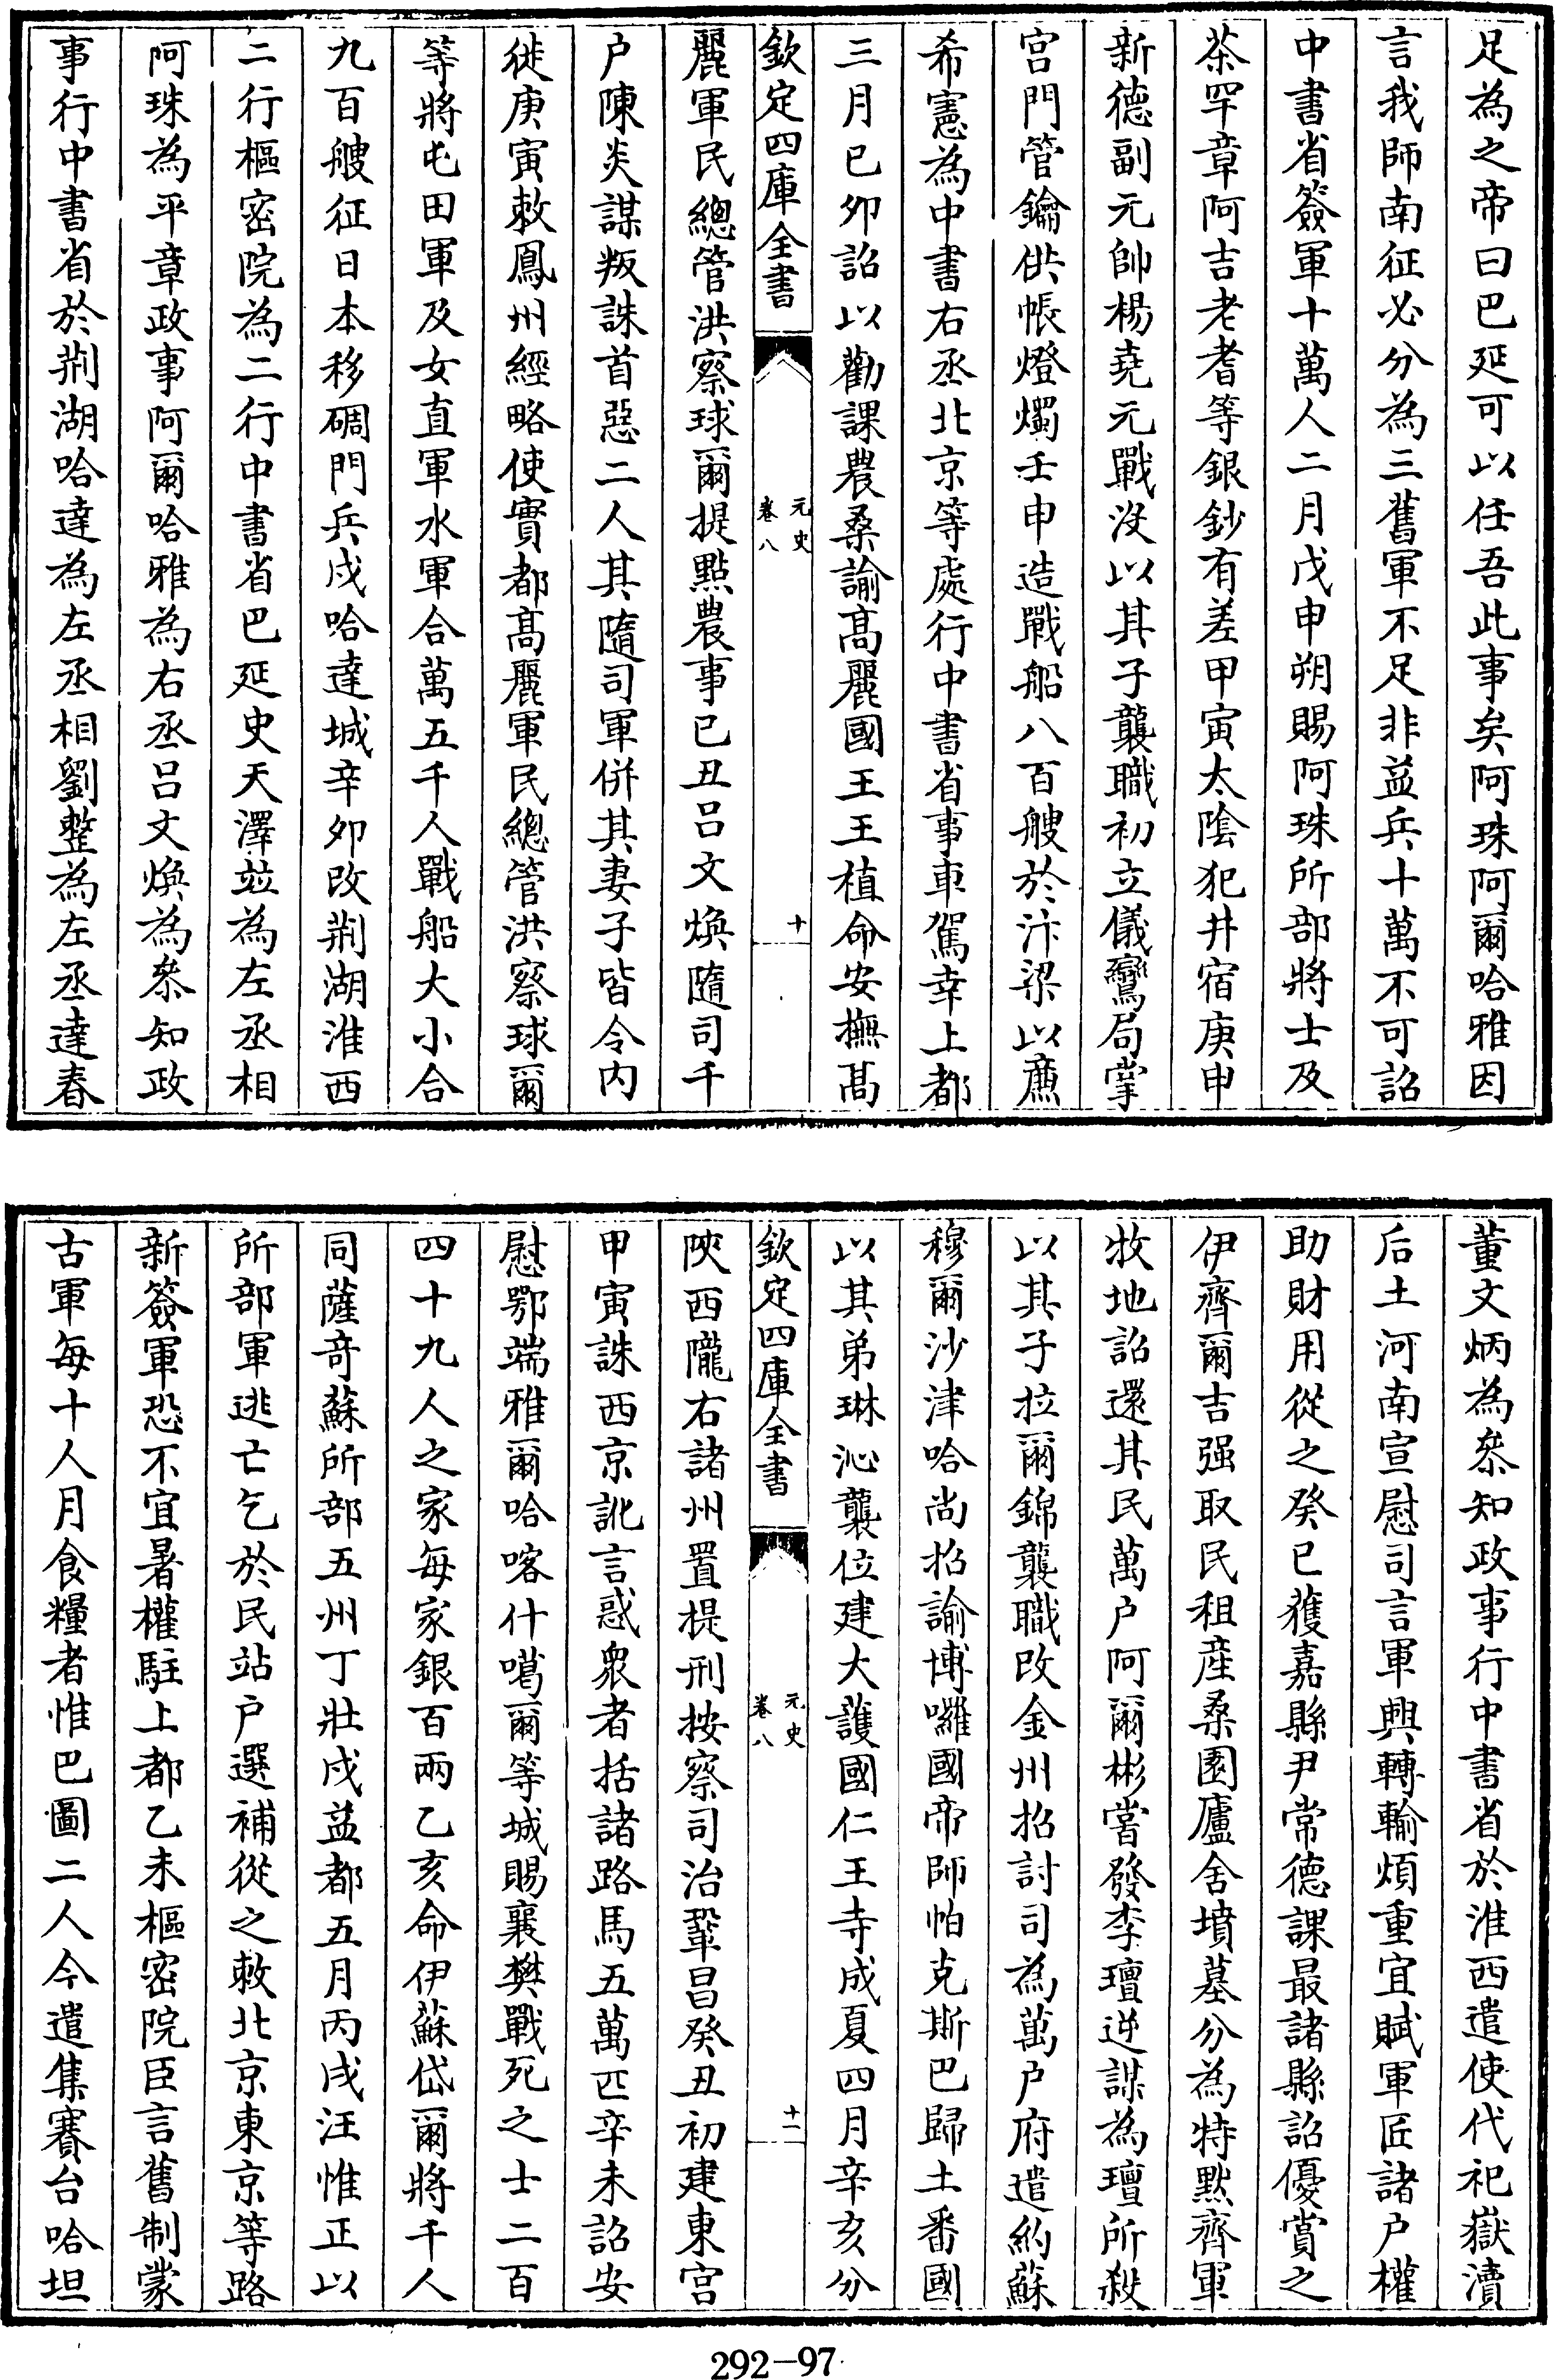 足為之帝曰巴延可以任吾此事矣阿珠阿爾哈雅因
言我師南征必分為三舊軍不足非益兵十萬不可詔
中書省簽軍十萬人二月戊申朔賜阿珠所部將士及
茶罕章阿吉老耆等銀鈔有差甲寅太陰犯井宿庚申
新德副元帥楊堯元戰没以其子襲職初立儀鸞局掌
宫門管鑰供帳燈燭壬申造戰船八百艘於汴梁以㢘
希憲為中書右丞北京等處行中書省事車駕幸上都
三月己卯詔以勸課農桑諭髙麗國王王植命安撫髙
欽定四庫全書
元史
卷八
十
麗軍民總管洪察球爾提點農事己丑吕文煥隨司千
户陳炎謀叛誅首惡二人其隨司軍併其妻子皆令内
徙庚寅敕鳳州經略使實都髙麗軍民總管洪察球爾
等將屯田軍及女直軍水軍合萬五千人戰船大小合
九百艘征日本移碉門兵戍哈達城辛卯改荆湖淮西
二行樞密院為二行中書省巴延史天澤竝為左丞相
阿珠為平章政事阿爾哈雅為右丞吕文煥為叅知政
事行中書省於荆湖哈達為左丞相劉整為左丞達春
董文炳為叅知政事行中書省於淮西遣使代祀嶽瀆
后土河南宣慰司言軍興轉輸煩重宜賦軍匠諸户權
助財用從之癸巳獲嘉縣尹常德課最諸縣詔優賞之
伊齊爾吉强取民租産桑園廬舍墳墓分為特默齊軍
牧地詔還其民萬户阿爾彬嘗發李璮逆謀為璮所殺
以其子拉爾錦襲職改金州招討司為萬户府遣約蘇
穆爾沙津哈尚招諭博囉國帝師帕克斯巴歸土番國
以其弟琳沁襲位建大護國仁王寺成夏四月辛亥分
欽定四庫全書
元史
卷八
十一
陜西隴右諸州置提刑按察司治鞏昌癸丑初建東宫
甲寅誅西京訛言惑衆者括諸路馬五萬匹辛未詔安
慰鄂端雅爾哈喀什噶爾等城賜襄樊戰死之士二百
四十九人之家每家銀百兩乙亥命伊蘇岱爾將千人
同薩竒蘇所部五州丁壯戍益都五月丙戌汪惟正以
所部軍逃亡乞於民站户選補從之敕北京東京等路
新簽軍恐不宜暑權駐上都乙未樞密院臣言舊制蒙
古軍每十人月食糧者惟巴圖二人今遣集賽台哈坦
292-97